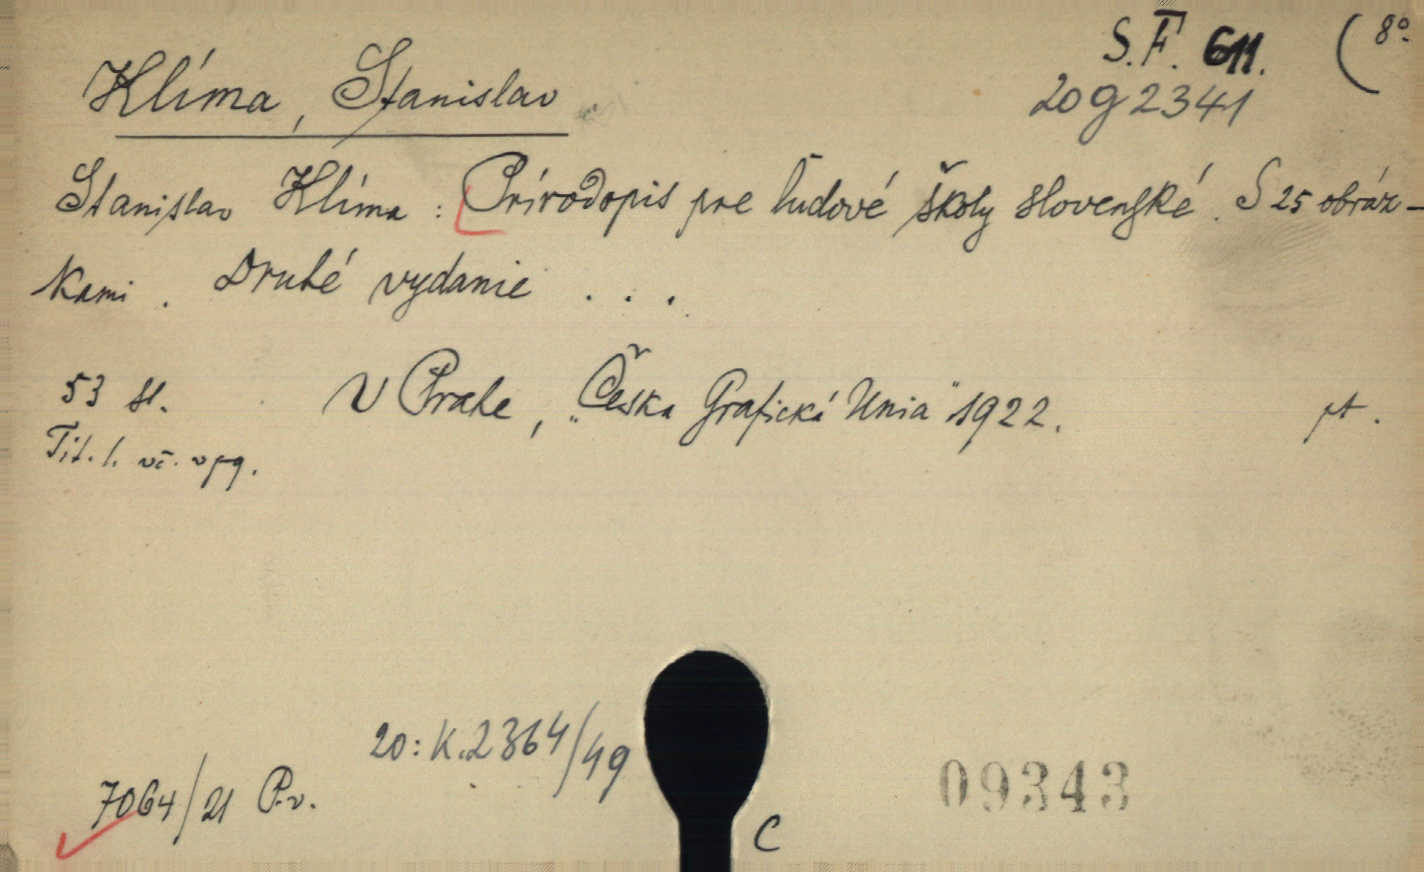 S.F. 611. (8°.
Klíma, Stanislav
20 g 2341
Stanislav Klíma : Prírodopis pre ľudové školy slovenské. S 25 obráz-
kami. Druhé vydanie . . .
53 sl. V Prahe, „Česka Grafická Unia" 1922. pt.
Tit. l. vč. v pg.
20: K.2364/49
7064/21 P.v.
09343
C